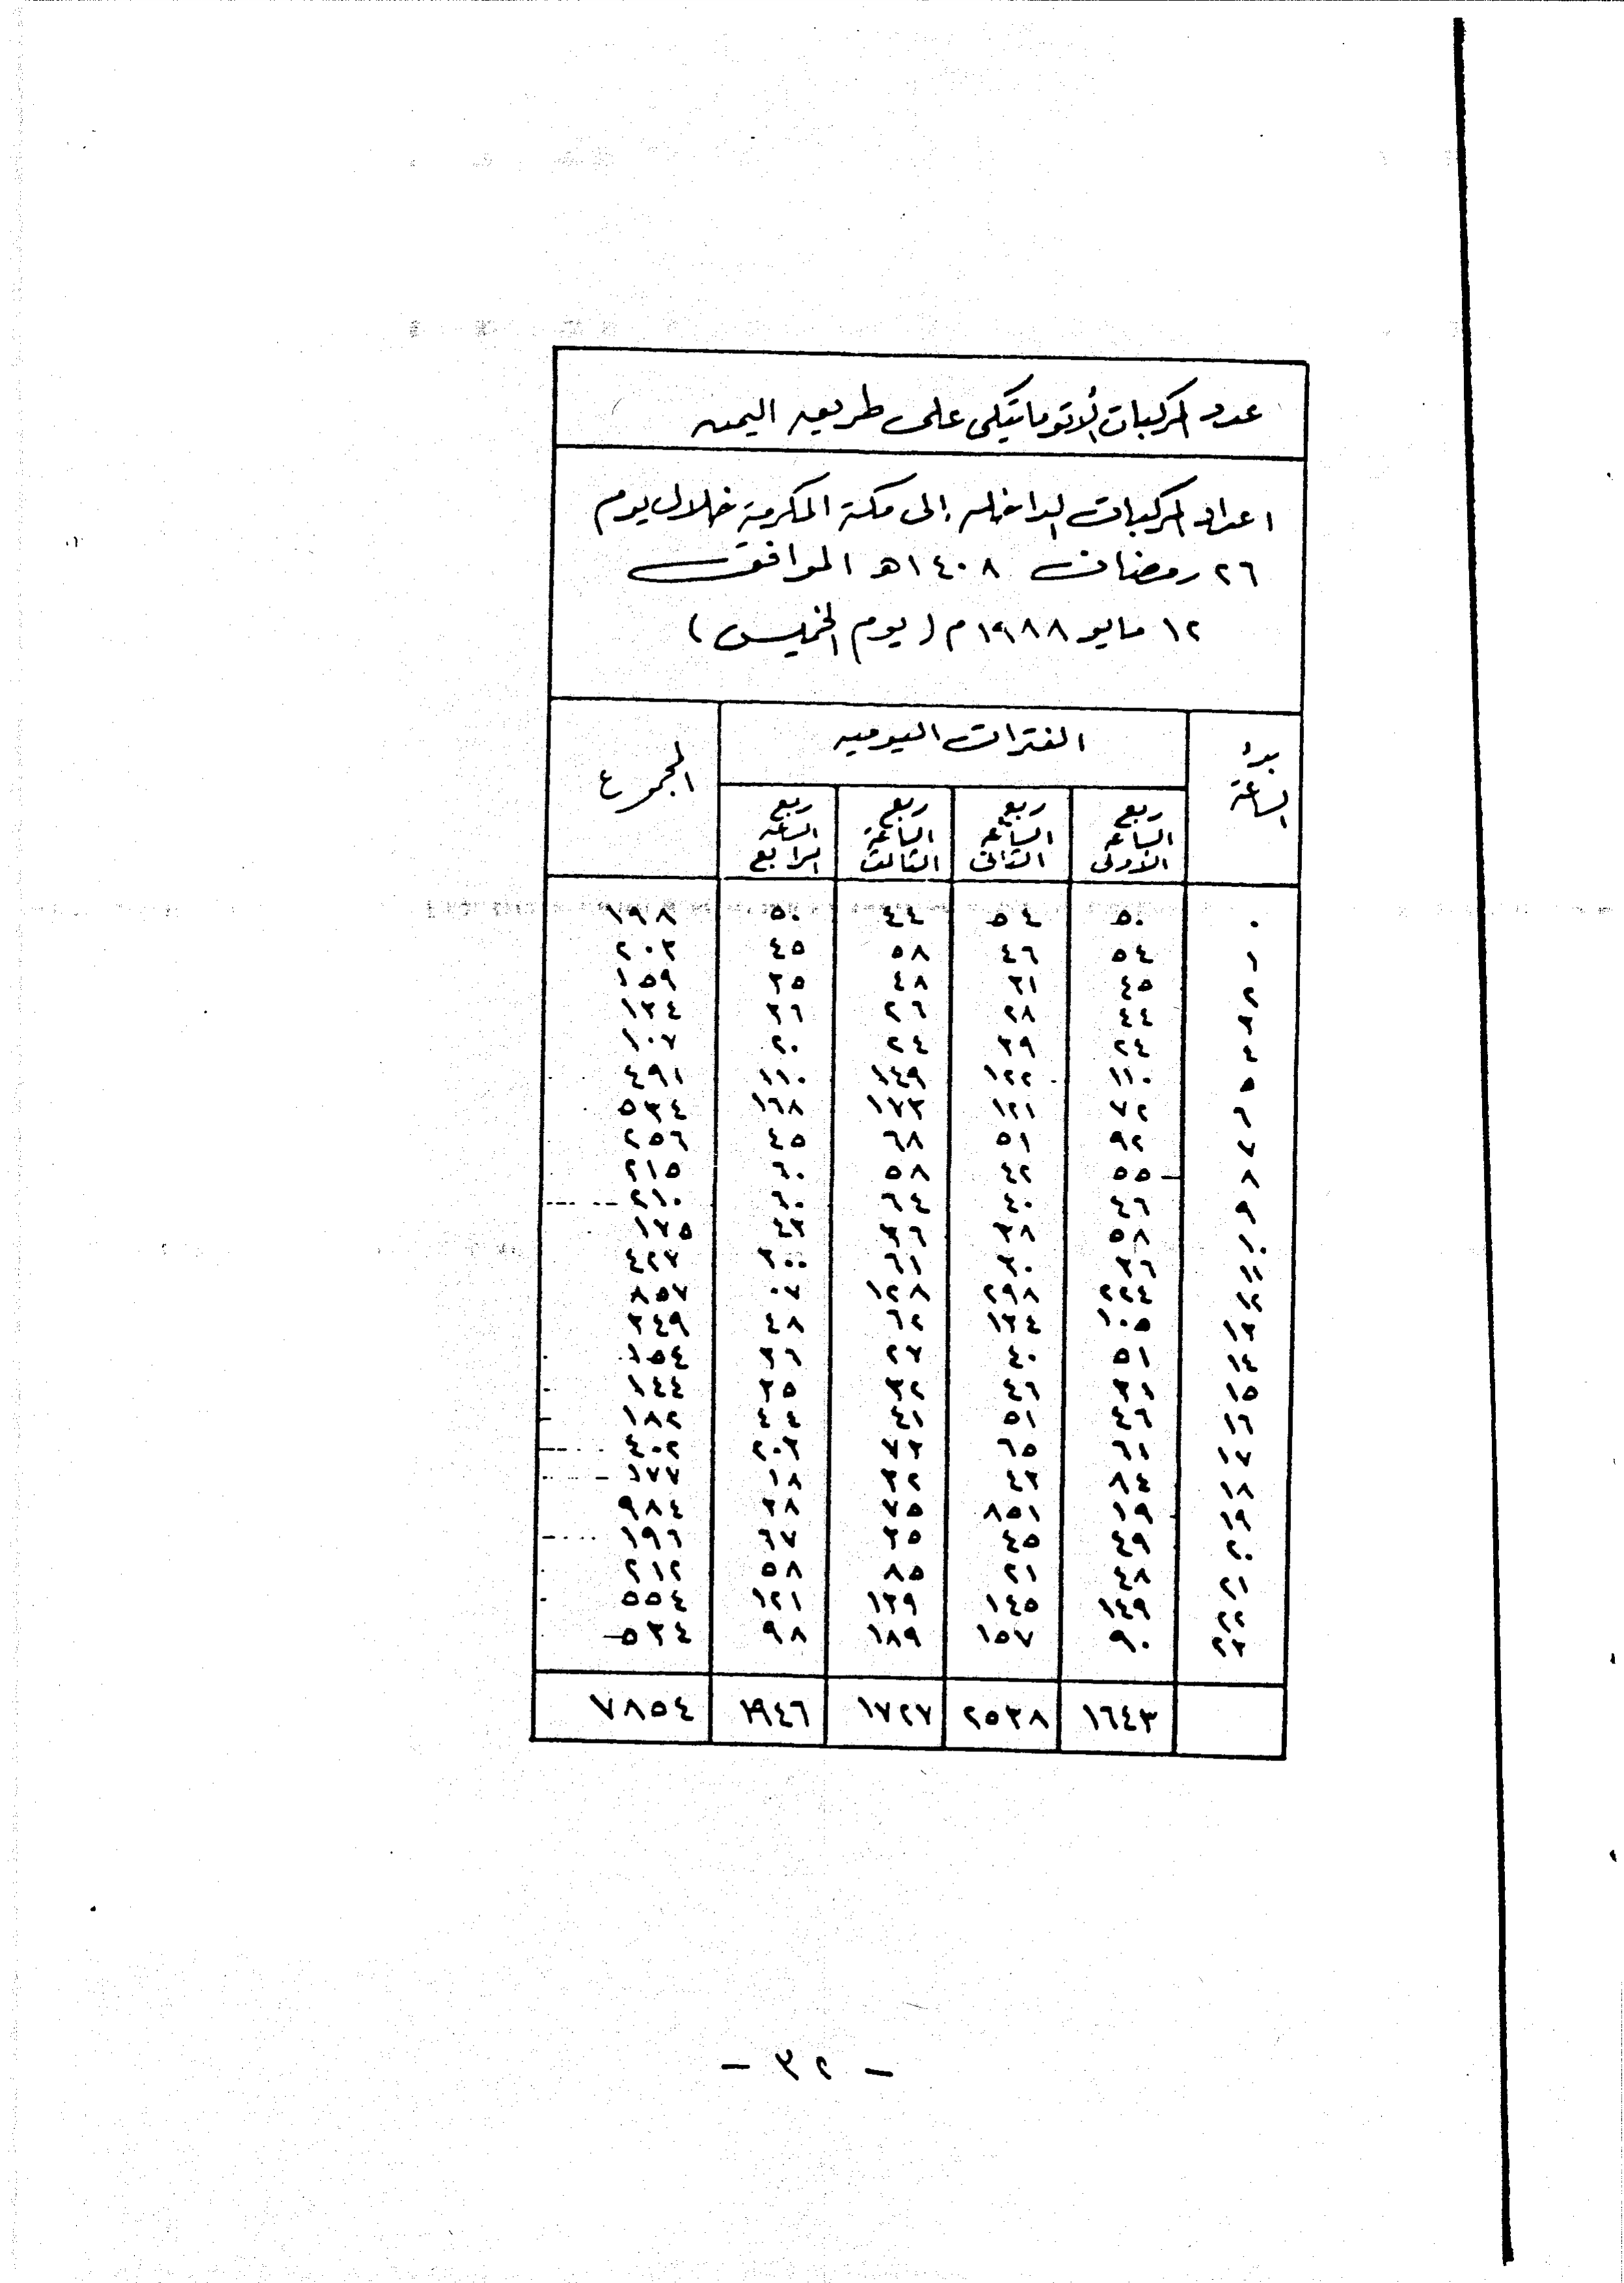 عدد المركبات الأتوماتيكى على طريق اليمن
اعداد المركبات الداخله إلى مكة المكرمة خلال يوم
٢٦ رمضان ١٤٠٨هـ الموافق
١٢ مايو ١٩٨٨م (يوم الخميس)
بدء الساعة الفترات اليوميه المجموع
ربع الساعة الأولى ربع الساعة الثانى ربع الساعة الثالث ربع الساعة الرابع
٠ ٥٠ ٥٤ ٤٤ ٥٠ ١٩٨
١ ٥٤ ٤٦ ٥٨ ٤٥ ٢٠٣
٢ ٤٥ ٣١ ٤٨ ٣٥ ١٥٩
٣ ٤٤ ٢٨ ٢٦ ٣٦ ١٣٤
٤ ٢٤ ٣٩ ٢٤ ٢٠ ١٠٧
٥ ١١٠ ١٢٢ ١٤٩ ١١٠ ٤٩١
٦ ٧٢ ١٢١ ١٧٣ ١٦٨ ٥٣٤
٧ ٩٢ ٥١ ٦٨ ٤٥ ٢٥٦
٨ ٥٥ ٤٢ ٥٨ ٦٠ ٢١٥
٩ ٤٦ ٤٠ ٦٤ ٦٠ ٢١٠
١٠ ٥٨ ٣٨ ٣٦ ٤٣ ١٧٥
١١ ٣٦ ٣٠ ٦١ ٣٠٠ ٤٢٧
١٢ ٢٢٤ ٢٩٨ ١٢٨ ٠٧ ٨٥٧
١٣ ١٠٥ ١٣٤ ٦٢ ٤٨ ٣٤٩
١٤ ٥١ ٤٠ ٢٧ ٣٦ ١٥٤
١٥ ٣١ ٤٦ ٣٢ ٣٥ ١٤٤
١٦ ٤٦ ٥١ ٤١ ٤٤ ١٨٢
١٧ ٦١ ٦٥ ٧٣ ٢٠٣ ٤٠٢
١٨ ٨٤ ٤٣ ٣٢ ١٨ ١٧٧
١٩ ١٩ ٨٥١ ٧٥ ٣٨ ٩٨٤
٢٠ ٤٩ ٤٥ ٣٥ ٦٧ ١٩٦
٢١ ٤٨ ٢١ ٨٥ ٥٨ ٢١٢
٢٢ ١٤٩ ١٤٥ ١٣٩ ١٢١ ٥٥٤
٢٣ ٩٠ ١٥٧ ١٨٩ ٩٨ ٥٣٤
١٦٤٣ ٢٥٣٨ ١٧٢٧ ١٩٤٦ ٧٨٥٤
- ٣٢ -